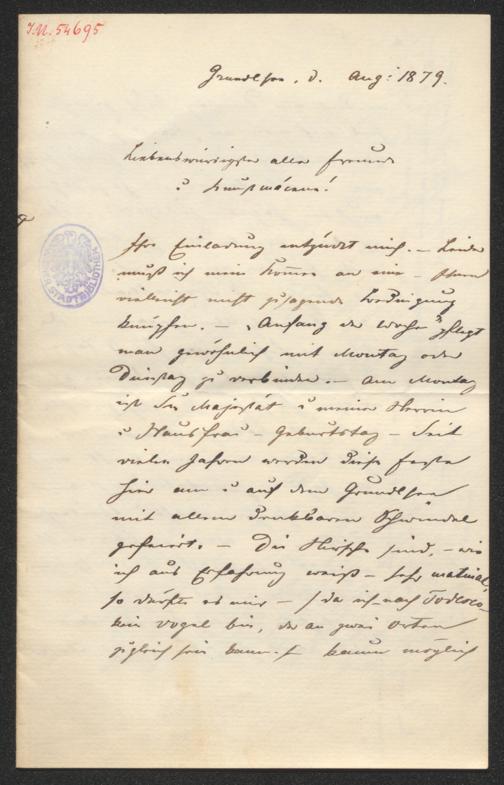 I.N. 54695
Grundlsee, d. Aug: 1879.
Liebenswürdigster aller Freunde
u Kunstmäcene!
Ihre Einladung entzückt mich. – Leider
muß ich mein Kommen an eine – Ihnen
vielleicht nicht zusagende Bedingung
knüpfen. – "Anfang der Woche" pflegt
man gewöhnlich mit Montag oder
Dienstag zu verbinden. – Am Montag
ist Sr Majestät u meiner Herrin
u Hausfrau – Geburtstag – Seit
vielen Jahren werden diese Feste
hier am u auf dem Grundlsee
mit allem denkbaren Schwindel
gefeiert. – Die Hirsche sind, – wie
ich aus Erfahrung weiß – sehr matinal
so dürfte es mir – /da ich nach
kein Vogel bin, der an zwei Orten
zugleich sein kann./ – kaum möglich